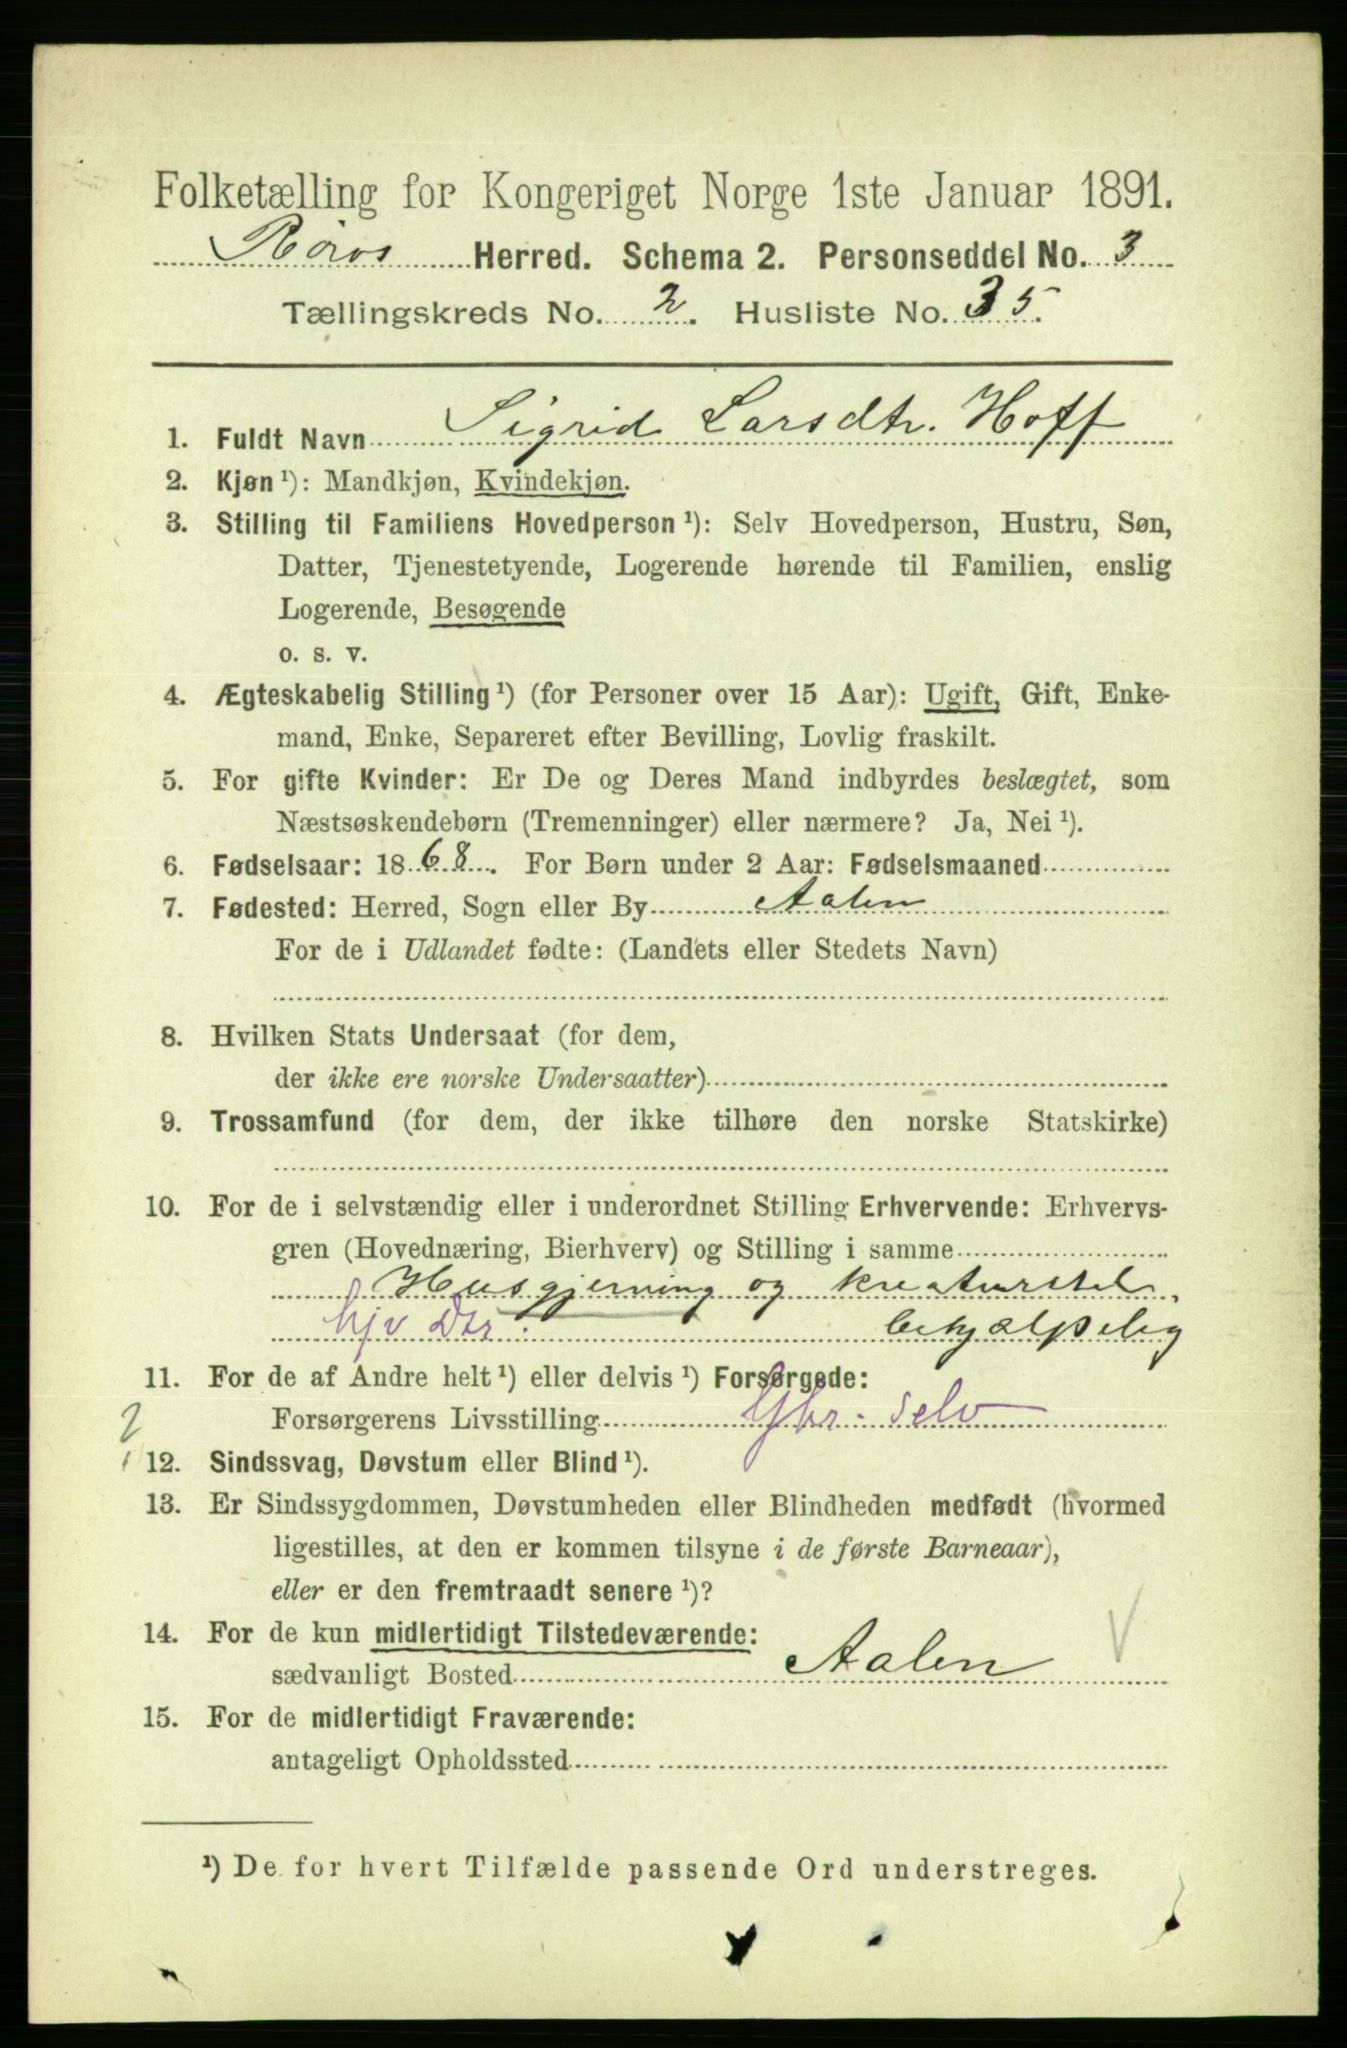 Folketælling for Kongeriget Norge 1ste Januar 1891.
Røros Herred. Schema 2. Personseddel No. 3
Tællingskreds No. 2. Husliste No. 35.
1. Fuldt Navn Sigrid Larsdtr. Hoff
2. Kjøn ¹): Mandkjøn, Kvindekjøn.
3. Stilling til Familiens Hovedperson ¹): Selv Hovedperson, Hustru, Søn,
Datter, Tjenestetyende, Logerende hørende til Familien, enslig
Logerende, Besøgende
o. s. v.
4. Ægteskabelig Stilling ¹) (for Personer over 15 Aar): Ugift, Gift, Enke-
mand, Enke, Separeret efter Bevilling, Lovlig fraskilt.
5. For gifte Kvinder: Er De og Deres Mand indbyrdes beslægtet, som
Næstsøskendebørn (Tremenninger) eller nærmere? Ja, Nei ¹).
6. Fødselsaar: 1868. For Børn under 2 Aar: Fødselsmaaned
7. Fødested: Herred, Sogn eller By Aalen
For de i Udlandet fødte: (Landets eller Stedets Navn)
8. Hvilken Stats Undersaat (for dem,
der ikke ere norske Undersaatter)
9. Trossamfund (for dem, der ikke tilhøre den norske Statskirke)
10. For de i selvstændig eller i underordnet Stilling Erhvervende: Erhvervs-
gren (Hovednæring, Bierhverv) og Stilling i samme
Husgjerning og kreaturstel,
hjv Dtr. behjælpelig
11. For de af Andre helt ¹) eller delvis ¹) Forsørgede:
Forsørgerens Livsstilling Gbr. selv
2
12. Sindssvag, Døvstum eller Blind ¹).
13. Er Sindssygdommen, Døvstumheden eller Blindheden medfødt (hvormed
ligestilles, at den er kommen tilsyne i de første Barneaar),
eller er den fremtraadt senere ¹)?
14. For de kun midlertidigt Tilstedeværende:
sædvanligt Bosted Aalen V
15. For de midlertidigt Fraværende:
antageligt Opholdssted
¹) De for hvert Tilfælde passende Ord understreges.